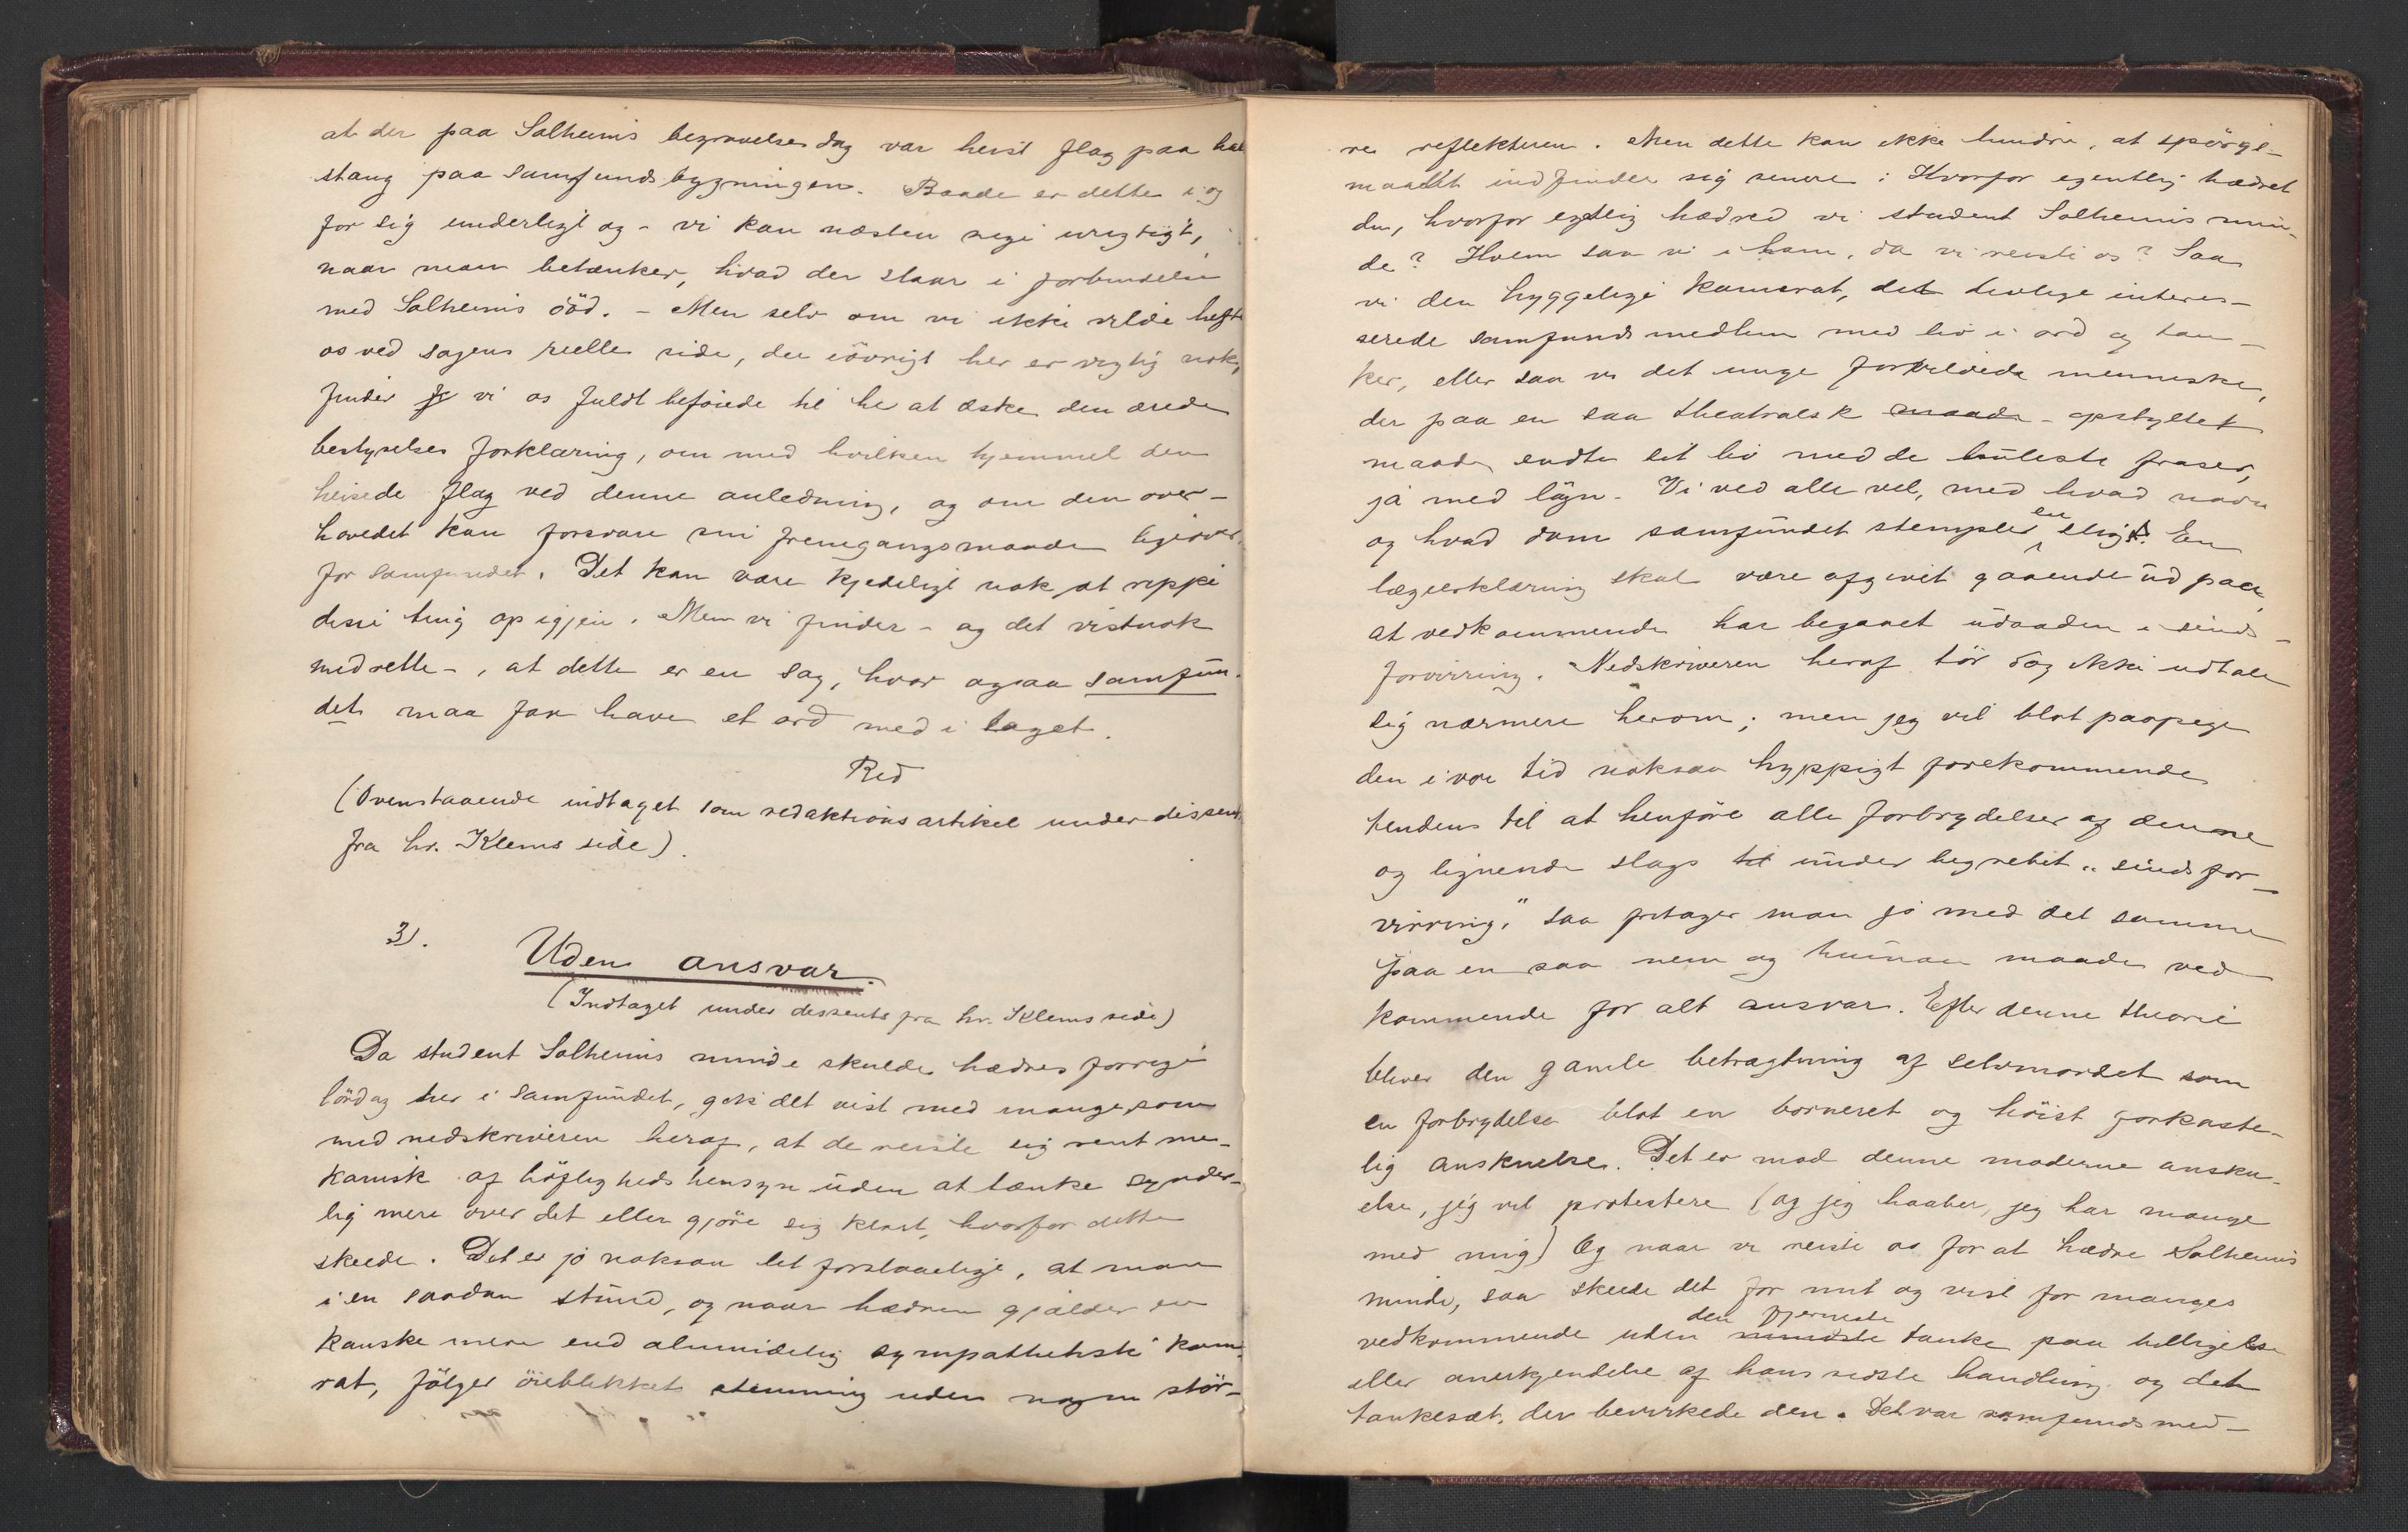 at der paa Solheims begravelsesdag var heist flag paa hal
stang paa Samfundsbygningen. Baade er dette i og
for sig underligt og - vi kan næsten sige urigtigt,
naar man betænker, hvad der staar i forbindelse
med Solheims död. - Men selv om vi ikke vilde hefte
os ved sagens reelle side, der iövrigt her er vigtig nok,
finder vi os fuldt beföiede til her at æske den ærede
bestyrelses forklæring, om med hvilken hjemmel den
heisede flag ved denne anledning, og om den over-
hovedet kan forsvare sin fremgangsmaade ligeover-
for samfundet. Det kan være kjedeligt nok at rippe
disse ting op igjen. Men vi finder - og det vistnok
med rette -, at dette er en sag, hvor ogsaa samfun-
det maa faa have et ord med i laget.
Red
(Ovenstaaende indtaget som redaktionsartikel under dissens
fra hr. Klems side).
3).
Uden ansvar.
(Indtaget under dissents fra hr. Klems side)
Da student Solheims minde skulde hædres forrige
lördag her i Samfundet, gik det vist med mange som
med nedskriveren heraf, at de reiste sig rent me-
kanisk af höflighedshensyn uden at tænke synder-
lig mere over det eller gjöre sig klart, hvorfor dette
skeede. Det er jo noksaa let forstaaeligt, at man
i en saadan stund, og naar hædren gjælder en
kanske mere end almindelig sympathetisk kame-
rat, fölger öieblikkets stemning uden nogen stör-
re reflekteren. Men dette kan ikke hindre, at spörgs-
maalet indfinder sig senere: Hvorfor egentlig hædret
du, hvorfor egentlig hædred vi student Solheims min-
de? Hvem saa vi i ham, da vi reiste os? Saa
vi den hyggelige kamerat, det livlige interes-
serede samfundsmedlem med liv i ord og tan-
ker, eller saa vi det unge forvildede menneske,
der paa en saa theatralsk maade - opstyltet
maade, endte sit liv med de huleste fraser,
ja med lögn. Vi ved alle vel, med hvad navn
og hvad dom samfundet stempler en sligt. En
lægeerklæring skal være afgivet gaaende ud paa,
at vedkommende har begaaet udaaden i sinds-
forvirring. Nedskriveren heraf tör dog ikke udtale
sig nærmere herom; men jeg vil blot paapege
den i vor tid noksaa hyppigt forekommende
tendens til at henföre alle forbrydelser af denne
og lignende slags til under begrebet "sindsfor-
virring," saa fritager man jo med det samme
paa en saa nem og human maade ved-
kommende for alt ansvar. Efter denne theorie
bliver den gamle betragtning af selvmordet som
en forbrydelse blot en borneret og höist forkaste-
lig anskuelse. Det er mod denne moderne ansku-
else, jeg vil protestere (og jeg haaber, jeg har mange
med mig) Og naar vi reiste os for at hædre Solheims
minde, saa skeede det for mit og vist for manges
vedkommende uden mindste den fjerneste tanke paa billigelse
eller anerkjendelse af hans sidste handling og det
tankesæt, der bevirkede den. Det var samfundsmed-